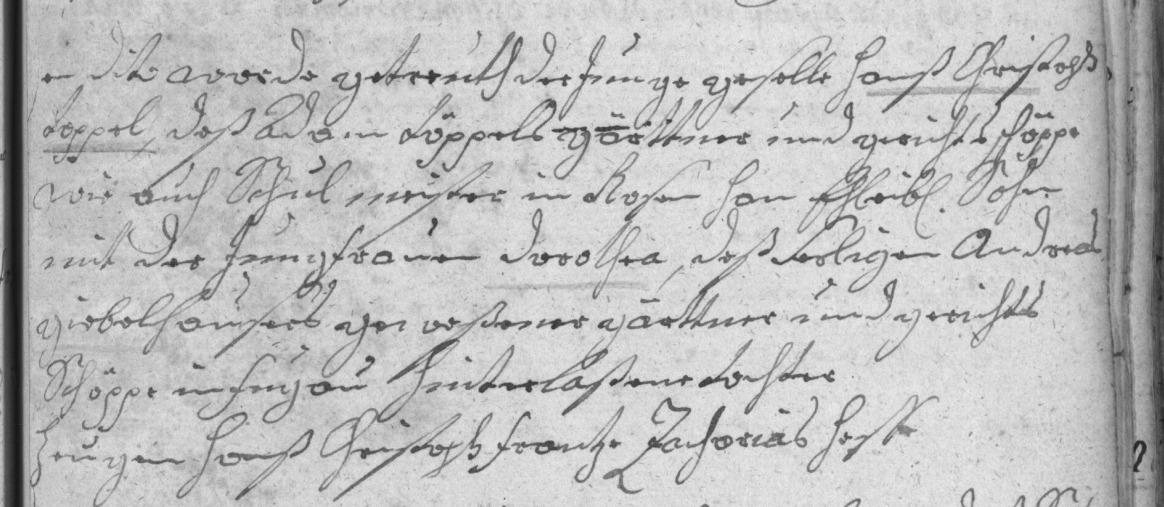 en dito worde getreuth der Junge geselle Hanß Christoph
Töppel, deß Adam Töppels gärttner und gerichts schöppe
wie auch Schul meister in Rosen han Sohn
mit der Jungfrauen Dorothea, deß seeligen Andreas
giebelhausers geweßener gärttner und gerichts
Schöppe in hinterlaßene tochter
Zeugen Hanß Christoph Frantze Zacharias Hesse